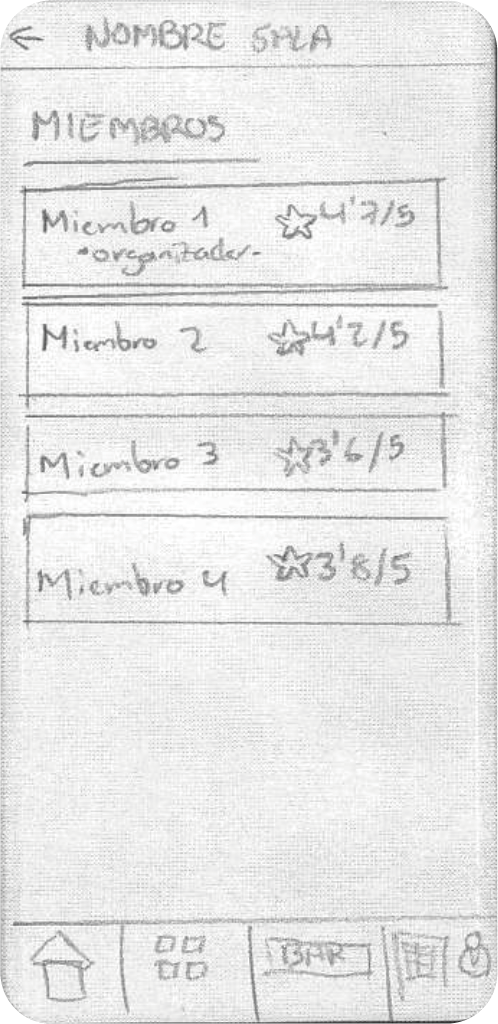 ← NOMBRE SALA
MIEMBROS
Miembro 1 ☆ 4'7/5
•organizador-
Miembro 2 ☆ 4'2/5
Miembro 3 ☆ 3'6/5
Miembro 4 ☆ 3'8/5
BAR